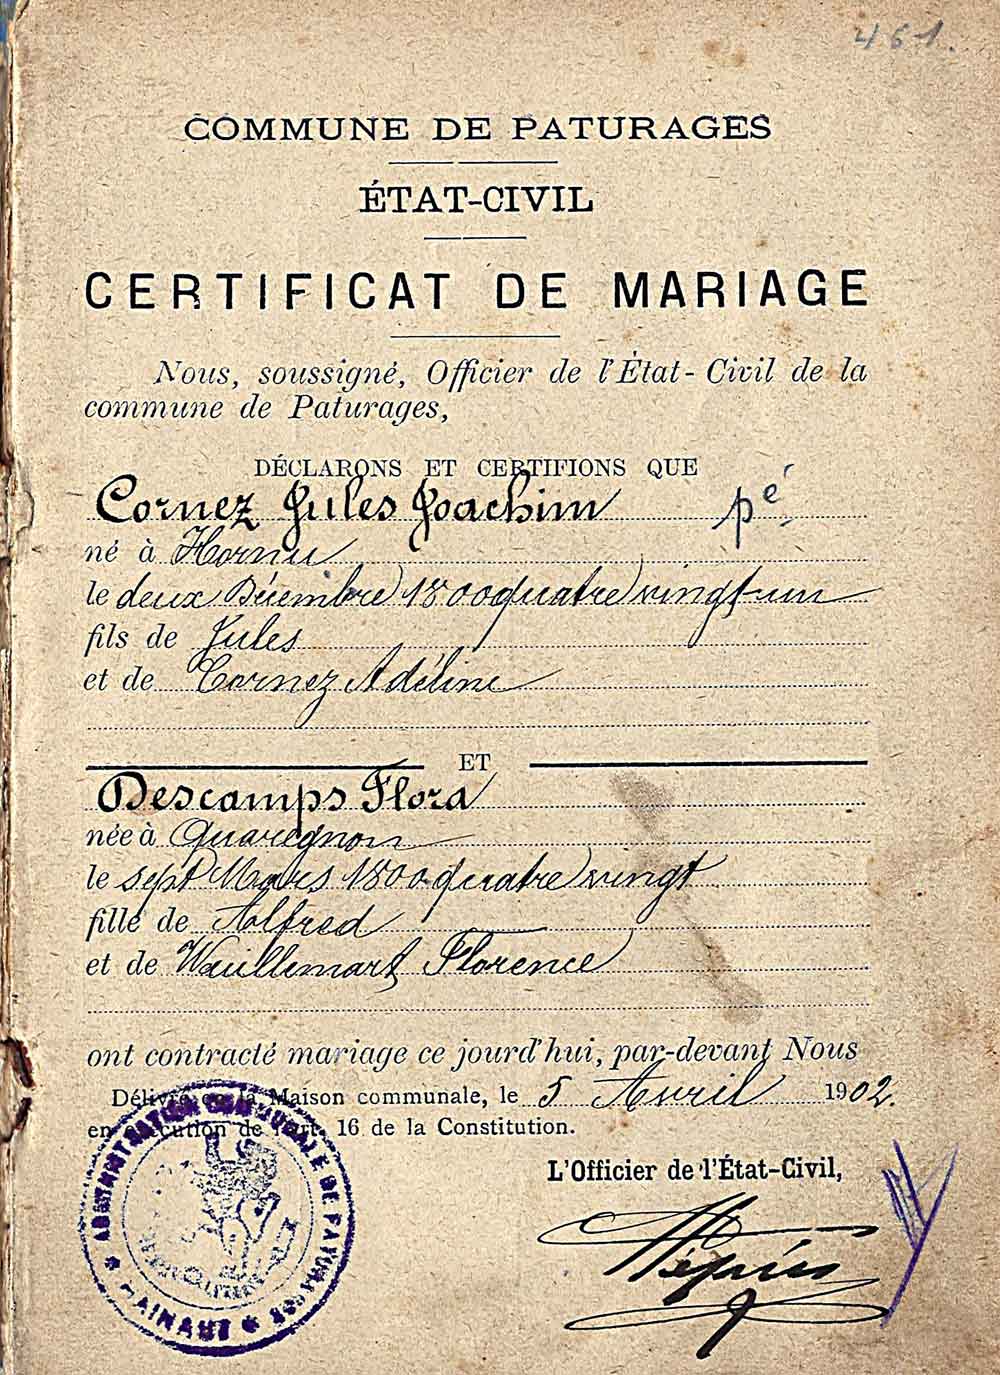 461.
COMMUNE DE PATURAGES
ÉTAT-CIVIL
CERTIFICAT DE MARIAGE
Nous, soussigné, Officier de l'État-Civil de la
commune de Paturages,
DÉCLARONS ET CERTIFIONS QUE
Cornez Jules Joachim pé
né à Hornu
le deux Décembre 1800 quatre vingt-un
fils de Jules
et de Cornez Adéline
ET
Descamps Flora
née à Quaregnon
le sept Mars 1800 quatre vingt
fille de Alfred
et de Wuillemart Florence
ont contracté mariage ce jourd'hui, par-devant Nous
Délivré en la Maison communale, le 5 Avril 1902.
en exécution de l'art. 16 de la Constitution.
L'Officier de l'État-Civil,
ADMINISTRATION COMMUNALE DE PATURAGES
* HAINAUT *